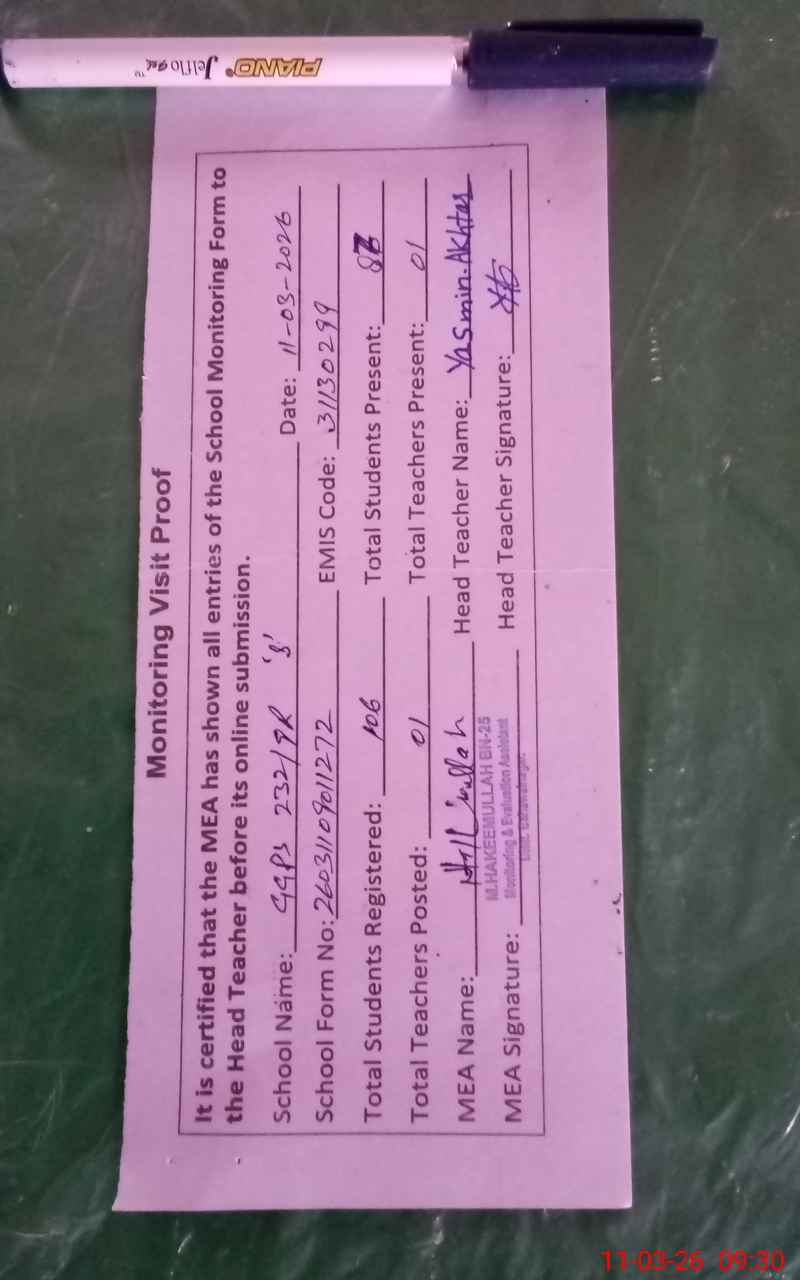 PIANO® Jelflo gel ™
Monitoring Visit Proof
It is certified that the MEA has shown all entries of the School Monitoring Form to
the Head Teacher before its online submission.
School Name: GGPS 232/9R 'B' Date: 11-03-2026
School Form No: 26031109011272 EMIS Code: 31130299
Total Students Registered: 106 Total Students Present: 87
Total Teachers Posted: 01 Total Teachers Present: 01
MEA Name: Head Teacher Name: Yasmin.Akhtar
M.HAKEEMULLAH BN-25
Monitoring & Evaluation Assistant
MEA Signature: Head Teacher Signature:
11-03-26 09:30